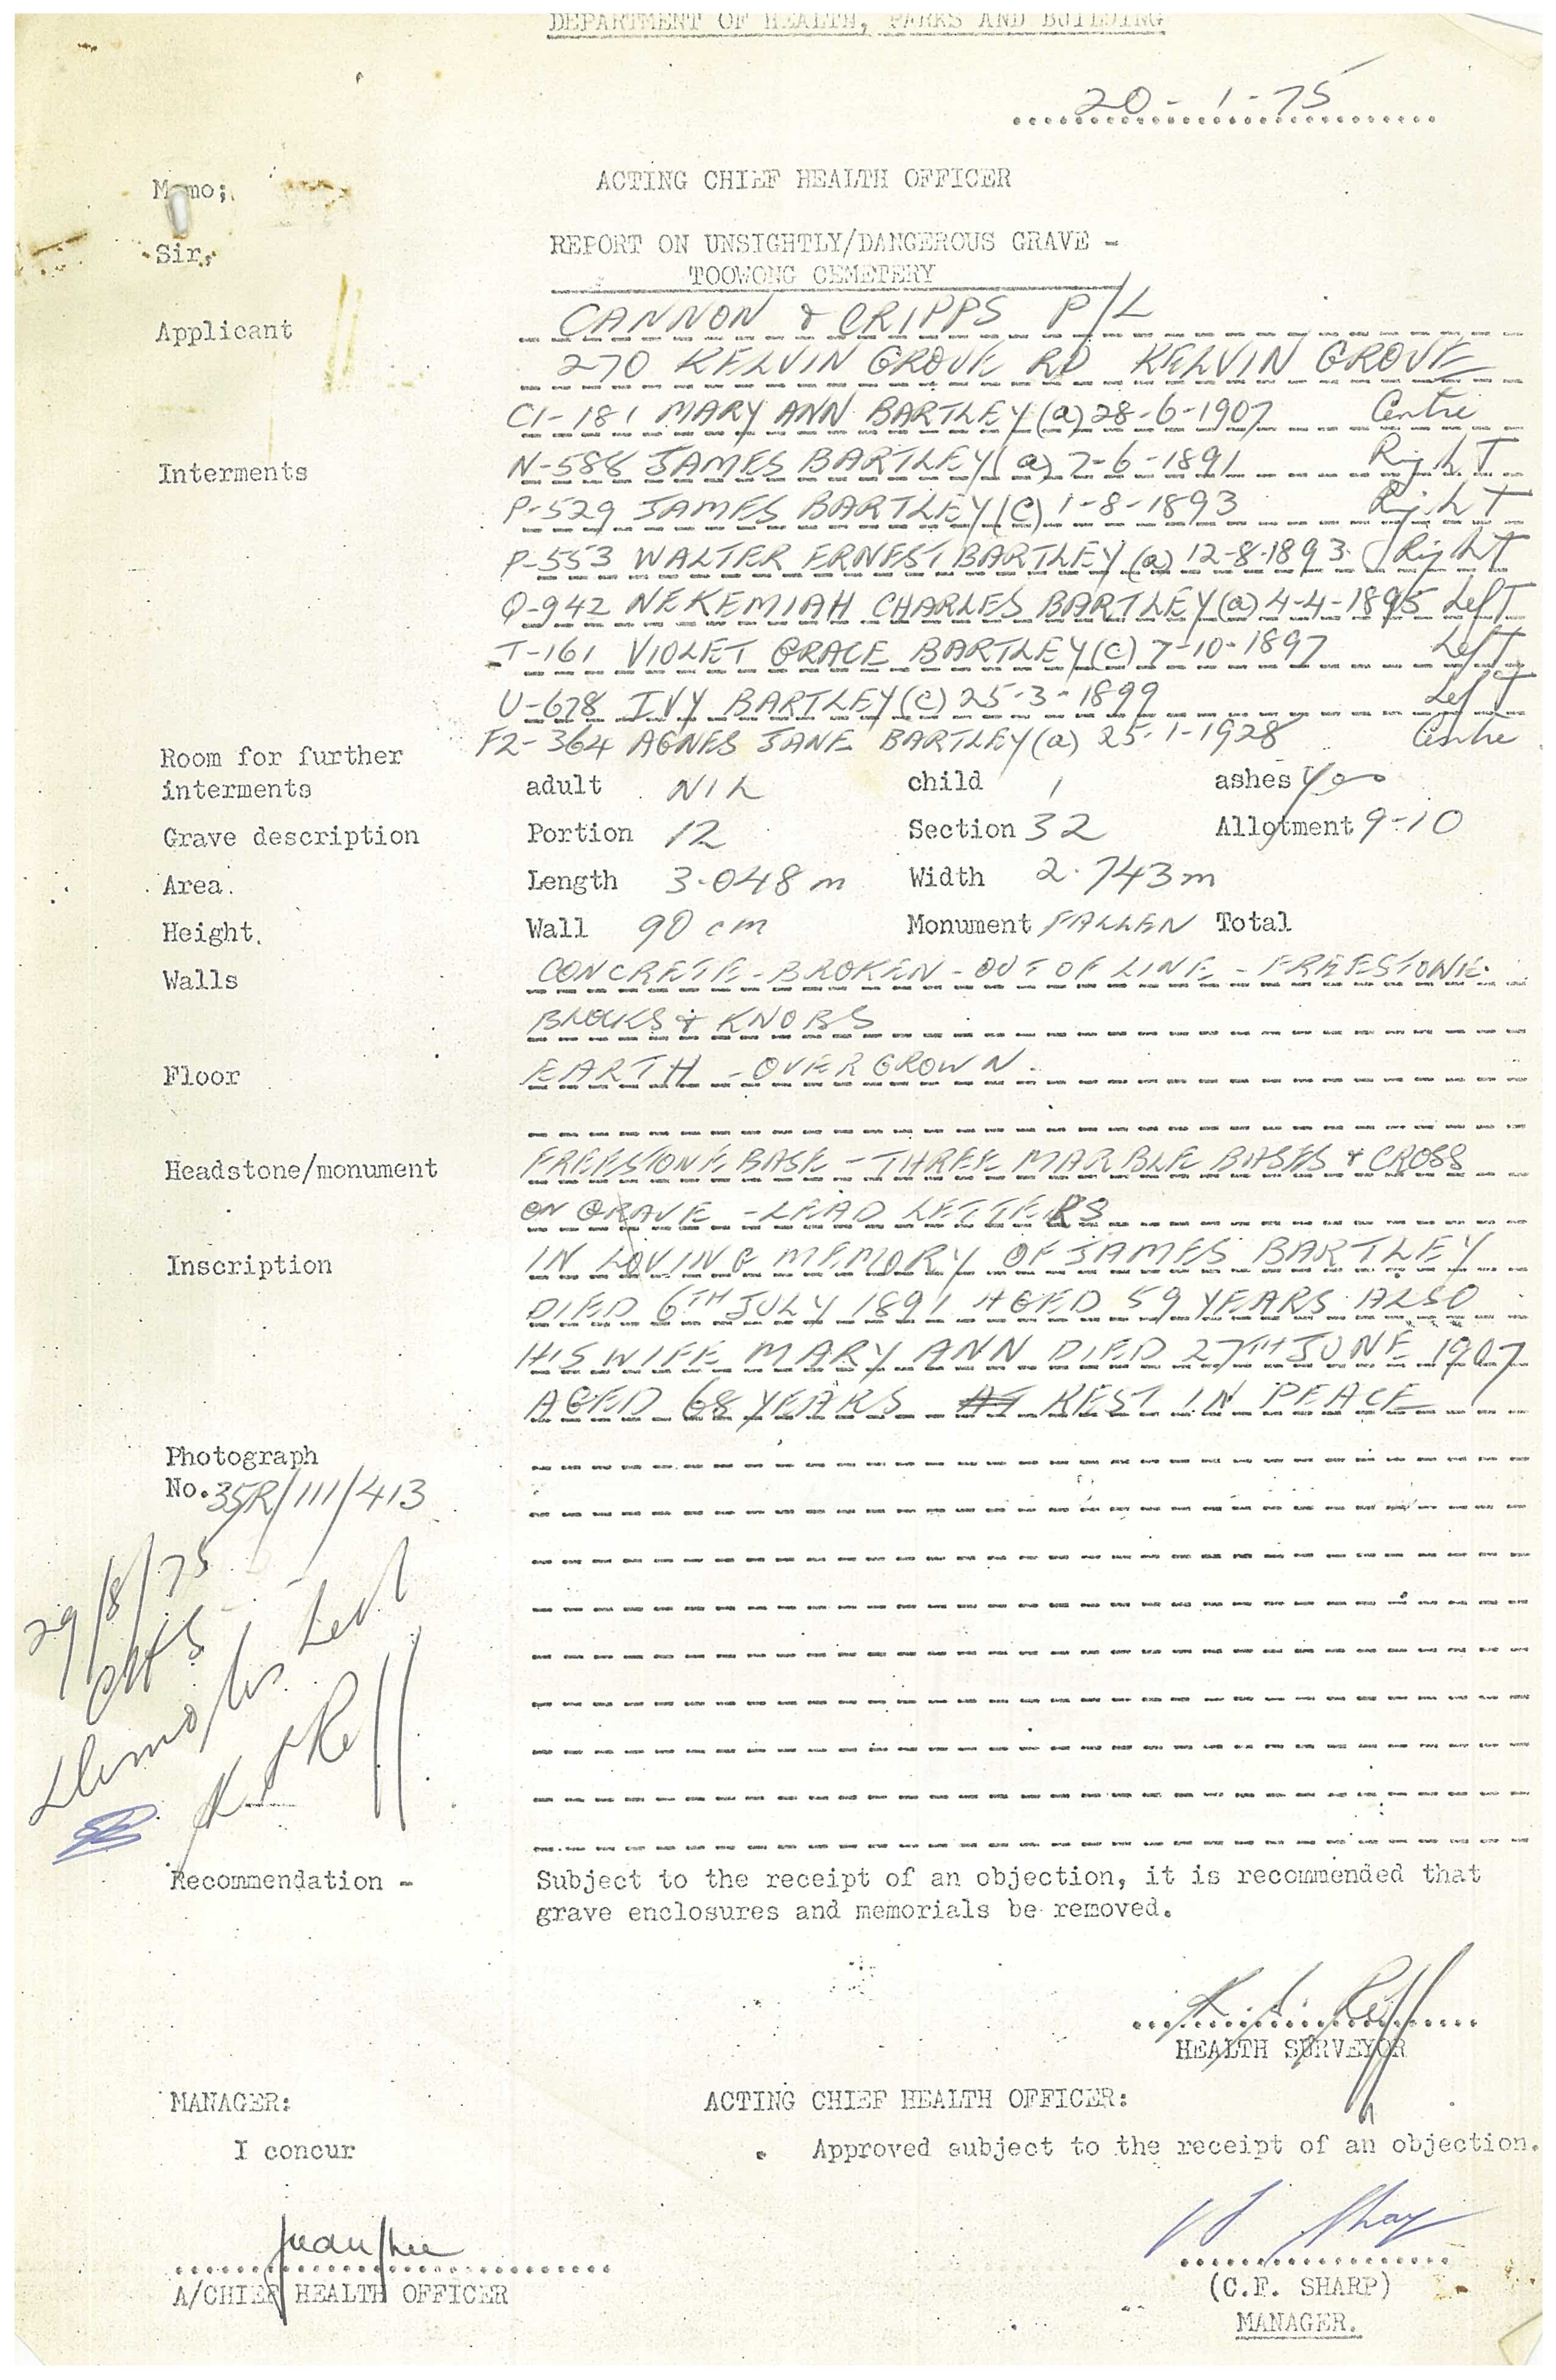 DEPARTMENT OF HEALTH, PARKS AND BUILDING
20-1-75
Memo;
ACTING CHIEF HEALTH OFFICER
Sir,
REPORT ON UNSIGHTLY/DANGEROUS GRAVE -
TOOWONG CEMETERY
Applicant CANNON & CRIPPS P/L
270 KELVIN GROVE RD KELVIN GROVE
C1-181 MARY ANN BARTLEY (a) 28-6-1907 Centre
Interments N-588 JAMES BARTLEY (a) 7-6-1891 Right
P-529 JAMES BARTLEY (C) 1-8-1893 Right
P-553 WALTER ERNEST BARTLEY (a) 12-8-1893 Right
Q-942 NEKEMIAH CHARLES BARTLEY (a) 4-4-1895 Left
T-161 VIOLET GRACE BARTLEY (C) 7-10-1897 Left
U-678 IVY BARTLEY (C) 25-3-1899 Left
F2-364 AGNES JANE BARTLEY (a) 25-1-1928 Centre
Room for further
interments adult NIL child 1 ashes Yes
Grave description Portion 12 Section 32 Allotment 9-10
Area. Length 3.048 m Width 2.743m
Height. Wall 90 cm Monument FALLEN Total
Walls CONCRETE - BROKEN - OUT OF LINE - FREESTONE
BLOCKS & KNOBS
Floor EARTH - OVERGROWN.
Headstone/monument FREESTONE BASE - THREE MARBLE BASES & CROSS
ON GRAVE - LEAD LETTERS
Inscription IN LOVING MEMORY OF JAMES BARTLEY
DIED 6TH JULY 1891 AGED 59 YEARS ALSO
HIS WIFE MARY ANN DIED 27TH JUNE 1907
AGED 68 YEARS AT REST IN PEACE
Photograph
No. 35R/111/413
29/8/75
Recommendation - Subject to the receipt of an objection, it is recommended that
grave enclosures and memorials be removed.
HEALTH SURVEYOR
MANAGER: ACTING CHIEF HEALTH OFFICER:
I concur . Approved subject to the receipt of an objection.
A/CHIEF HEALTH OFFICER
(C.F. SHARP)
MANAGER.